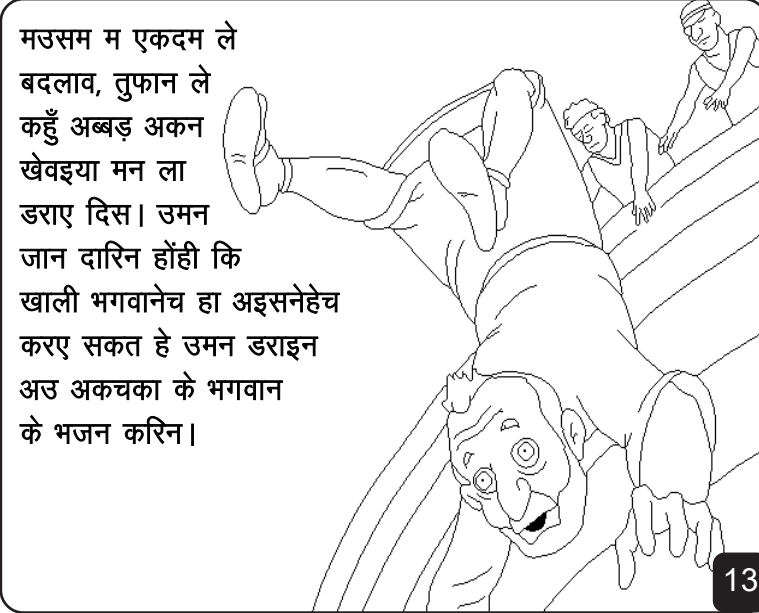 मउसम म एकदम ले
बदलाव, तुफान ले
कहुँ अब्बड़ अकन
खेवइया मन ला
डराए दिस। उमन
जान दारिन होंही कि
खाली भगवानेच हा अइसनेहेच
करए सकत हे उमन डराइन
अउ अकचका के भगवान
के भजन करिन।
13